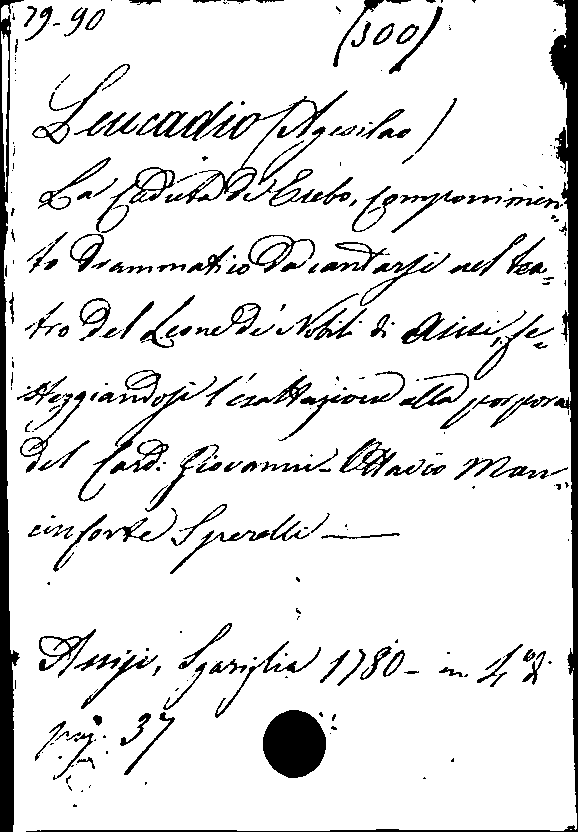 79-90
(300)
Leucadio (Agesilao)
La Caduta di Erebo, componimen-
to drammatico da cantarsi nel tea-
tro del Leone de' Nobili di Asisi, fe-
steggiandosi l'esaltazione alla porpora
del Card: Giovanni-Ottavio Man-
ciforte Sperelli —
Assisi, Sgariglia 1780 - in 4° di
pag. 37